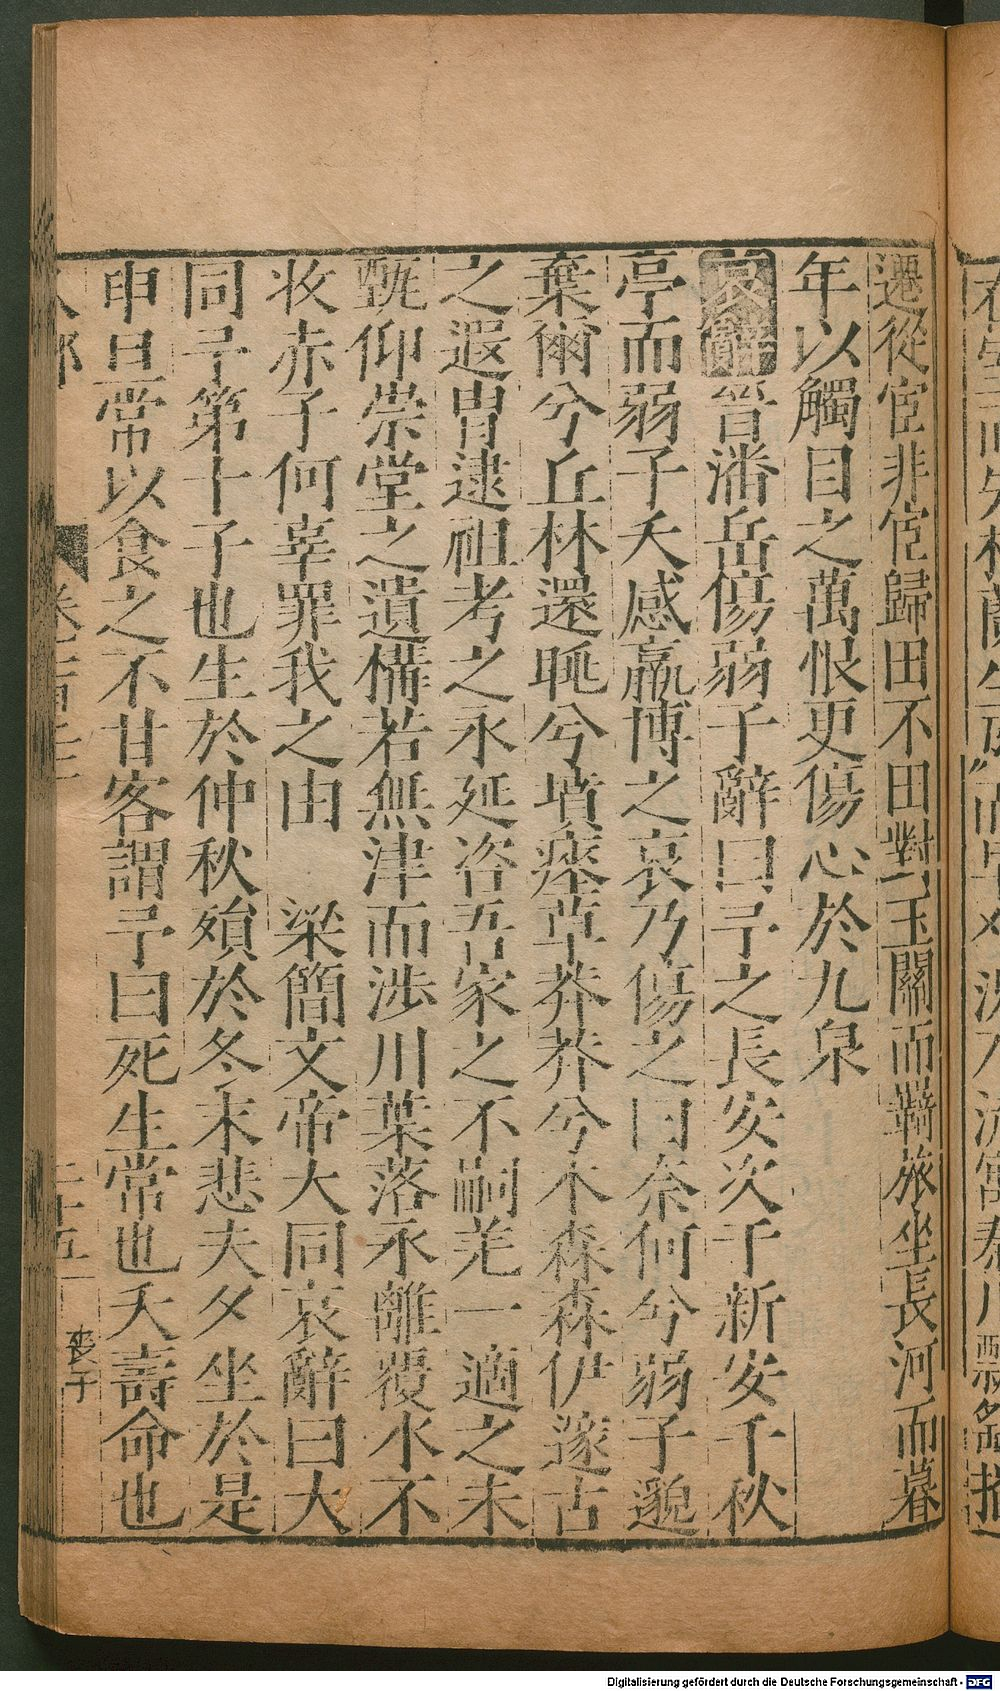 遷從宦非宦歸田不田對玉關而羇旅坐長河而暮
年以觸目之萬恨更傷心於九泉
哀辭晉潘岳傷弱子辭曰子之長安次于新安千秋
亭而弱子夭感嬴博之哀乃傷之曰奈何兮弱子邈
棄爾兮丘林還眺兮墳瘞草莽莽兮木森森伊邃古
之遐胄逮祖考之永延咨吾家之不嗣羌一適之未
甄仰崇堂之遺構若無津而涉川葉落永離覆水不
收赤子何辜罪我之由　梁簡文帝大同哀辭曰大
同予第十子也生於仲秋殞於冬末悲夫夕坐於是
申旦常以食之不甘客謂予曰死生常也夭壽命也
人部 卷
二十五
喪子
Digitalisierung gefördert durch die Deutsche Forschungsgemeinschaft - DFG